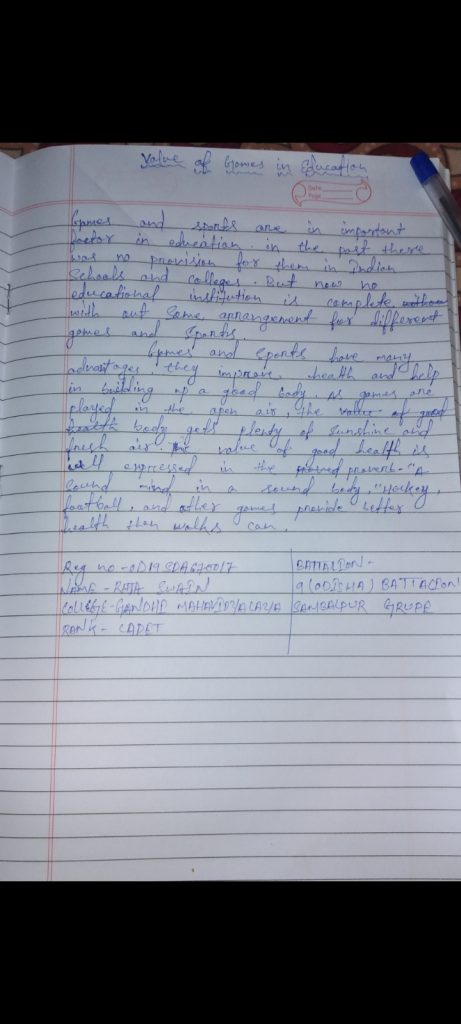 Value of Games in Education
Date
Page
Games and sports are in important
factor in education. in the past there
was no provision for them in Indian
Schools and colleges. But now no
educational institution is complete
with out Some arrangement for different
games and Sports.
Games and Sports have many
advantages. They improve health and help
in building up a good body. As games are
played in the open air, the value of good
health body gets plenty of Sunshine and
fresh air. The value of good health is
well expressed in the proverb- "A
Sound mind in a sound body." Hockey,
football, and other games provide better
health than walks can.
Reg no.-OD19SDA670017
NAME - RAJA SWAIN
COLLEGE-GANDHI MAHAVIDYALAYA
RANK - CADET
BATTALION -
9(ODISHA) BATTALION
SAMBALPUR GRUPE